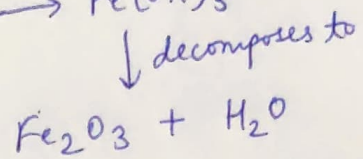 decomposes to
Fe₂O₃ + H₂O